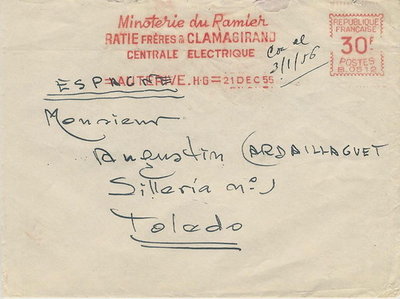 Minoterie du Ramier
RATIE FRÈRES & CLAMAGIRAND
CENTRALE ELECTRIQUE
AUTERIVE. H-G 21 DEC 55
REPUBLIQUE
FRANÇAISE
30F
POSTES
B.0512
Con el
3/1/56
ESPAGNE
Monsieur
Angustin CARDAILLAGUET
Silleria nº 1
Toledo